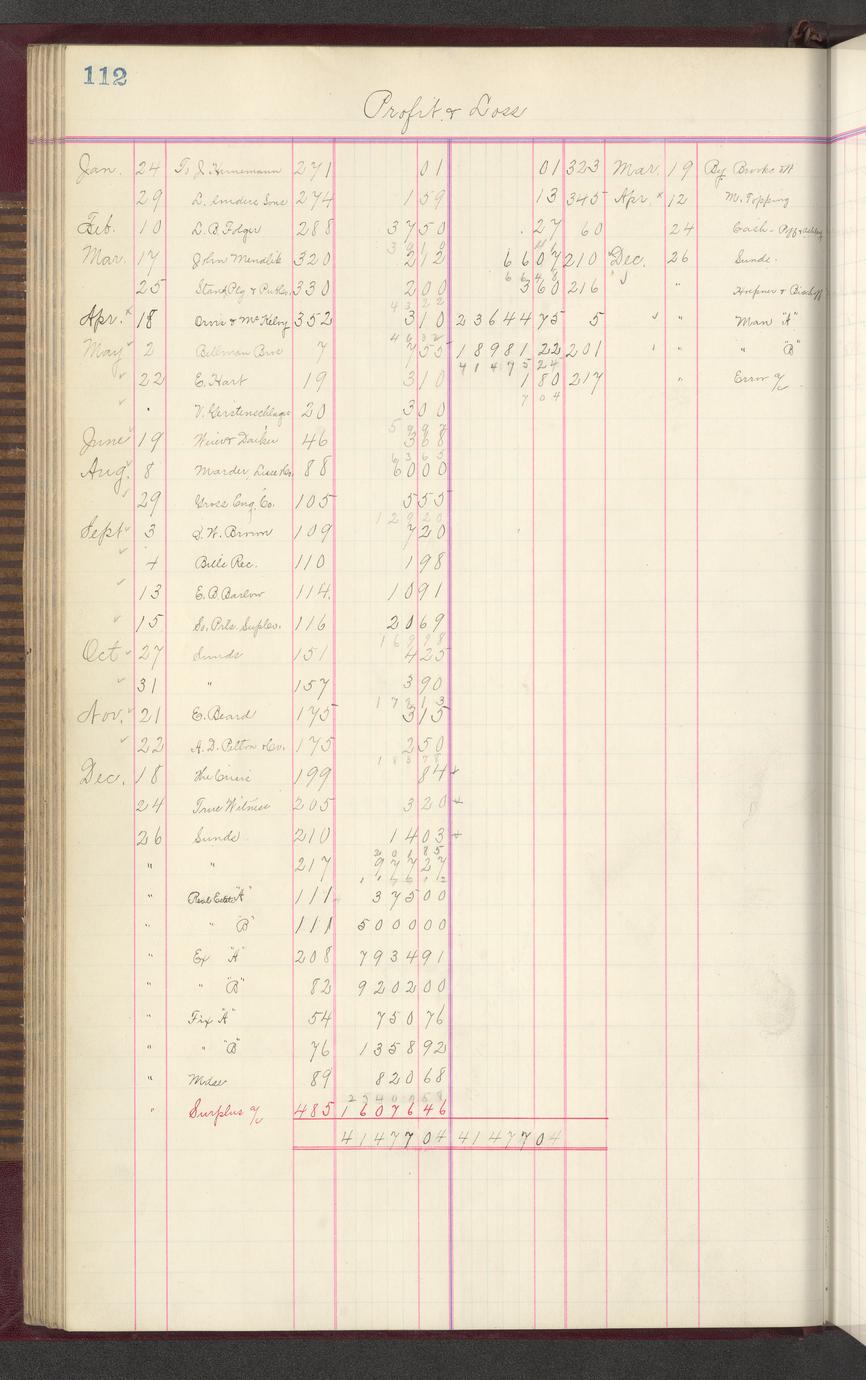 112
Profit & Loss
Jan. 24 To J. Heinemann 271 01 01 323 Mar. 19 By Brooks
29 L. Sons 274 1 59 13 345 Apr. x 12 M. Topping
Feb. 10 L. B. Folger 288 37 50 . 27 60 24 Cash -
39 10 41
Mar. 17 John Mendlik 320 2 12 66 07 210 Dec. 26 Sunds.
66 48
25 Stand Plg & Put Co. 330 2 00 3 60 216 " Hefner & Bischoff
43 22
Apr. x 18 Orvis & McKelvy 352 3 10 23644 75 5 " Man "A"
46 32
May 2 Billman Bros 7 7 55 18981 22 201 " " "B"
41475 24
22 E. Hart 19 3 10 1 80 217 " Error a/c
7 04
" V. Kerstenschlager 20 3 00
59 97
June 19 Weir & Darker 46 3 68
63 65
Aug. 8 Marder, Luse & Co. 88 60 00
29 Gross Eng. Co. 105 5 55
129 20
Sept 3 S. W. Brown 109 7 20
4 Bills Rec. 110 1 98
13 E. B. Barlow 114. 10 91
15 So. Prts. Suplas. 116 20 69
169 98
Oct 27 Sunds 151 4 25
31 " 157 3 90
172 13
Nov. 21 E. Beard 175 3 15
22 A. D. Pelton & Co. 175 2 50
183 78
Dec. 18 The Crisis 199 84
24 True Witness 205 3 20
26 Sunds 210 14 03
201 85
" " 217 977 27
" Real Estate "A" 111 375 00
" " "B" 111 5000 00
" Ex "A" 208 7934 91
" " "B" 82 9202 00
" Fix "A" 54 750 76
" " "B" 76 1358 92
" Mdse 89 820 68
25400 58
" Surplus a/c 485 16076 46
41477 04 41477 04